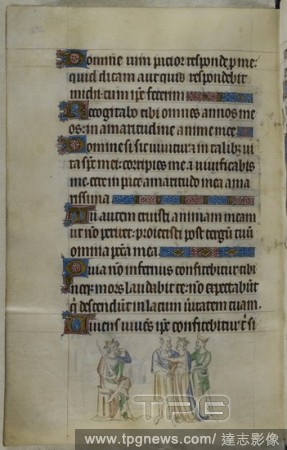 Domine vim patior responde p me.
quid dicam aut quid respondebit
michi cum ipse fecerim
Recogitabo tibi omnes annos me
os: in amaritudine anime mee
Domine si sic vivitur in talib; vi
ta sps mei: corripies me et vivificabis
me. ecce in pace amaritudo mea ama
rissima
Tu autem eruisti animam meam
ut no periret: proiecisti post tergu tuu
omnia pcca mea
Quia no infernus confitebitur tibi
neq; mors laudabit te: no expectabut
qi descendut in lacum veritatem tuam.
Vivens vivens ipse confitebitur t si
TPG
www.tpgnews.com/ 達志影像